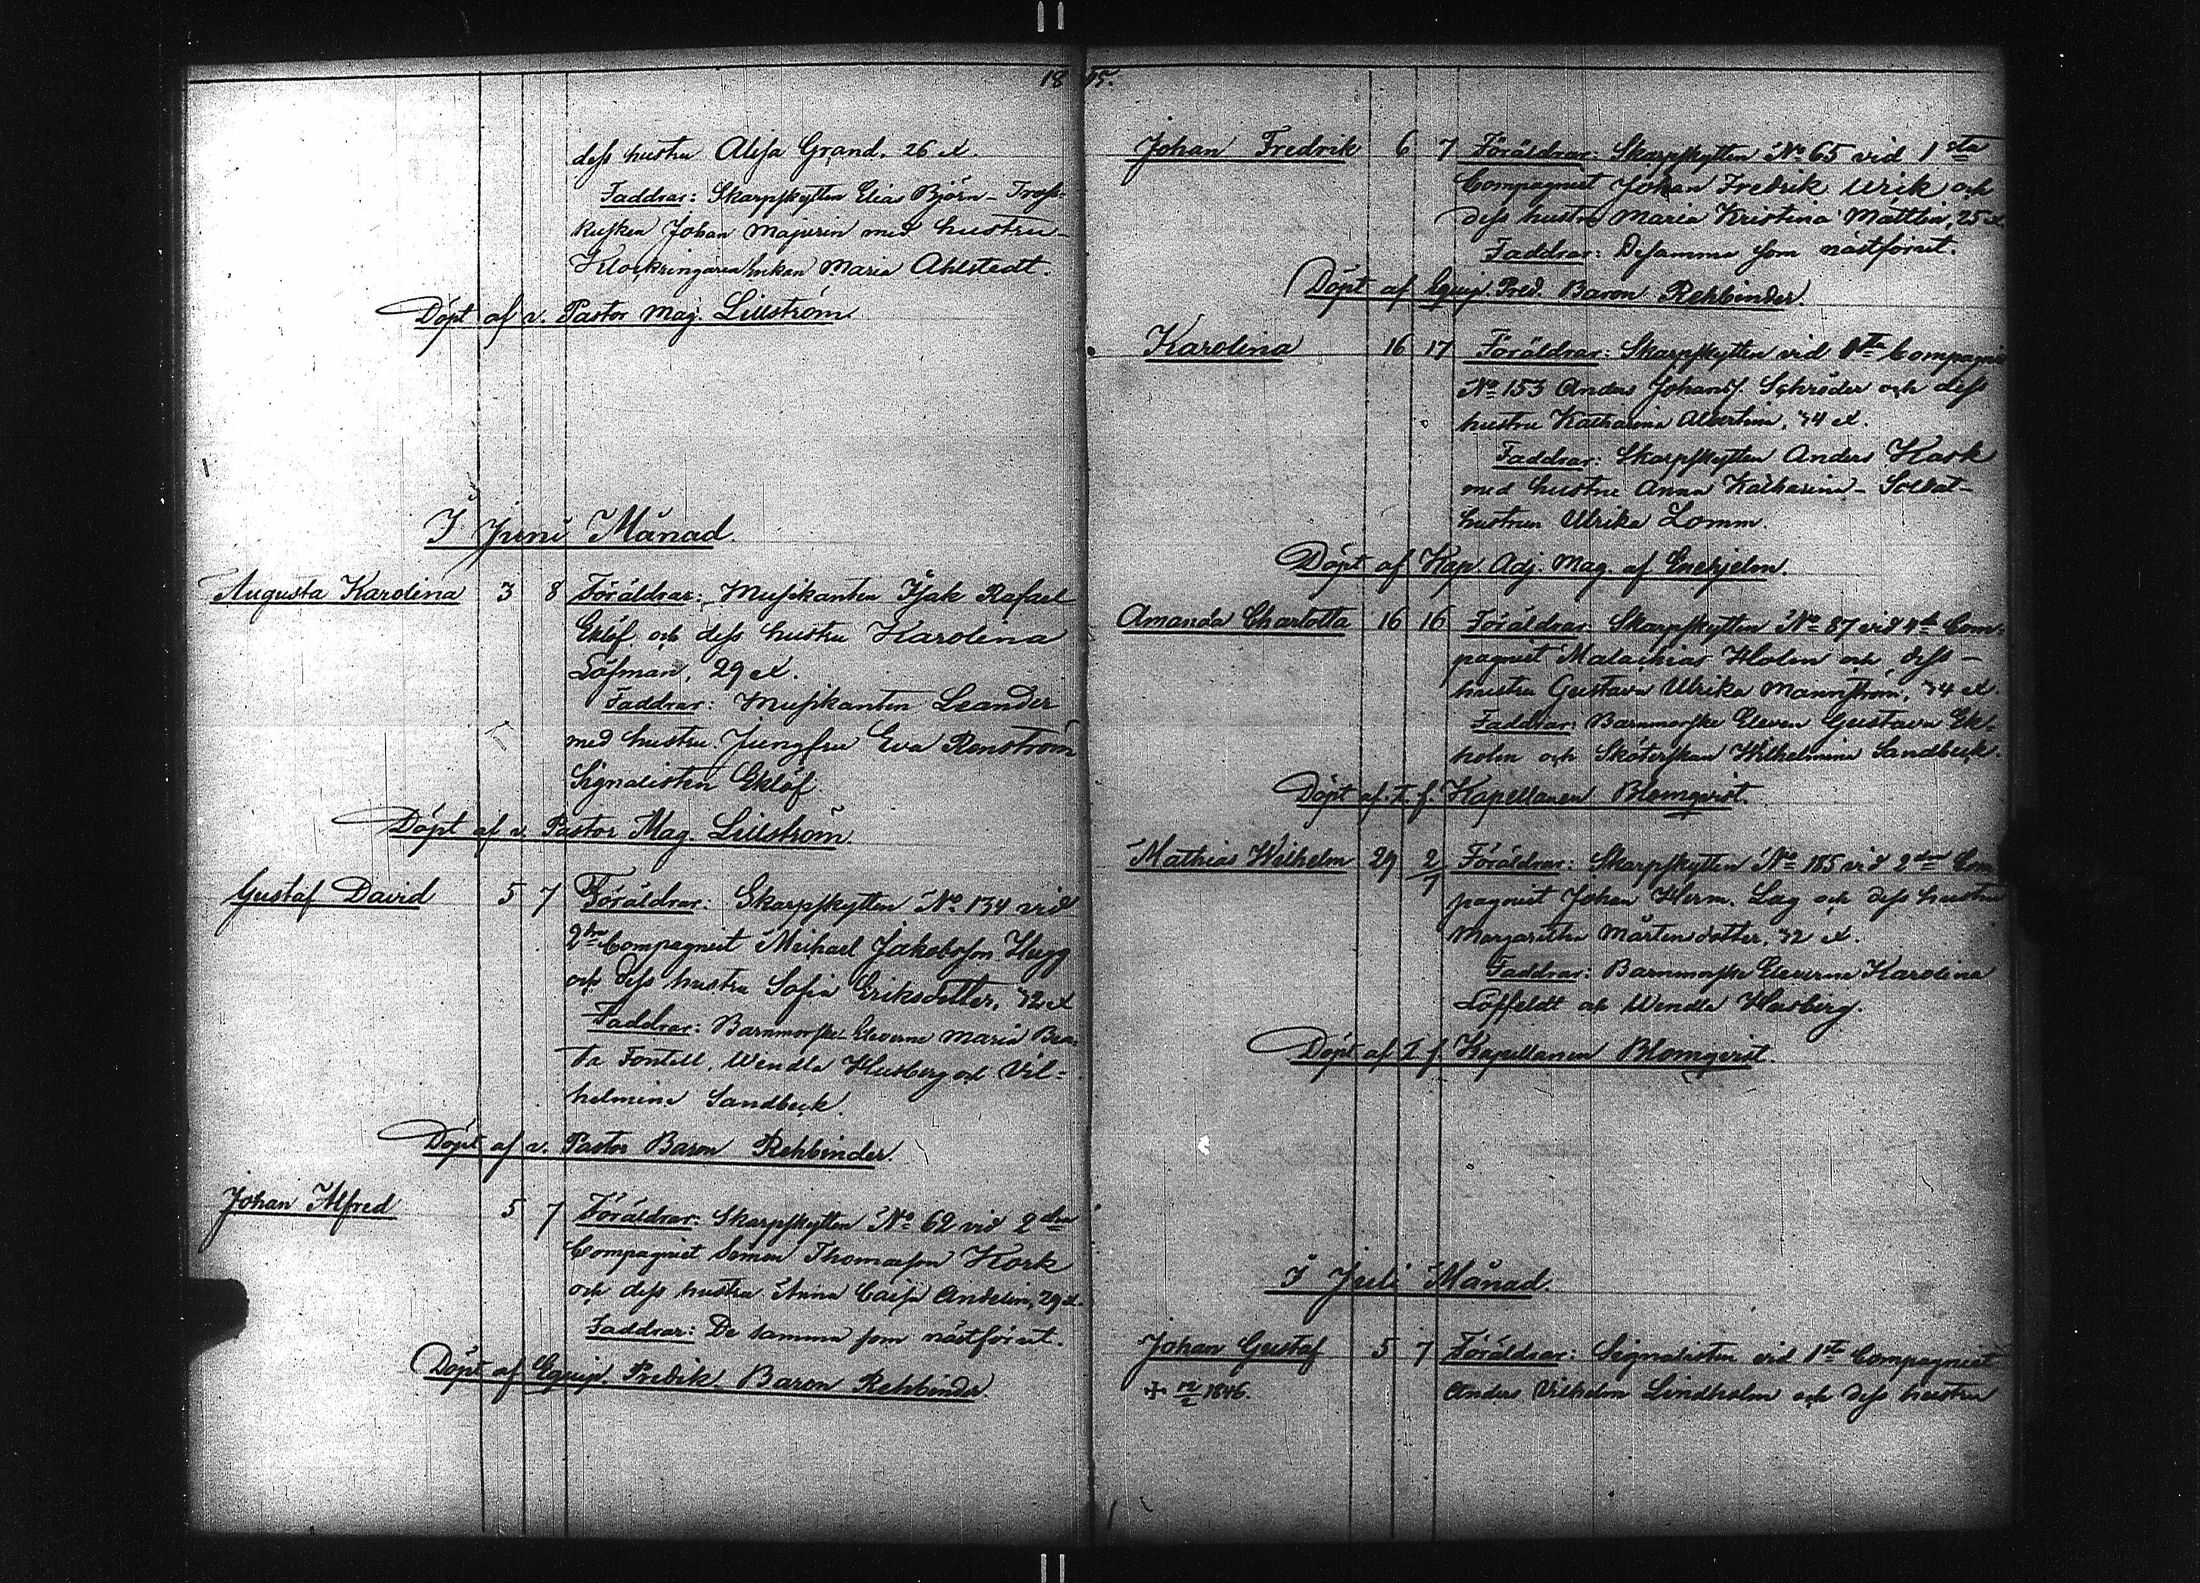 18 45.
dess hustru Alisa Grand. 26 år.
Faddrar: Skarpskytten Elias Björn - Tross-
kusken Johan Majurin med hustru -
Klockringareänkan Maria Ahlstedt.
Döpt af v. Pastor Mag. Lillström.
I Juni Månad.
Augusta Karolina 3 8 Föräldrar: Musikanten Isak Rafael
Eklöf och dess hustru Karolina
Löfman, 29 år.
Faddrar: Musikanten Leander
med hustru. Jungfru Eva Renström
Signalisten Eklöf
Döpt af v. Pastor Mag. Lillström.
Gustaf David 5 7 Föräldrar: Skarpskytten No. 134 vid
2dra Compagniet Michael Jakobsson Hugg
och dess hustru Sofia Eriksdotter, 32 år
Faddrar: Barnmorske-Eleverne Maria Bea-
ta Fontell, Wendla Husberg och Vil=
helmina Sandbeck.
Döpt af v. Pastor Baron Rehbinder.
Johan Alfred 5 7 Föräldrar: Skarpskytten No 62 vid 2dra
Compagniet Simon Thomasson Kork
och dess hustru Anna Caisa Andelin, 29 år.
Faddrar: De samma som nästförut.
Döpt af Equip. Predik. Baron Rehbinder
Johan Fredrik 6 7 Föräldrar: Skarpskytten No 65 vid 1sta
Compagniet Johan Fredrik Urik och
dess hustru Maria Kristina Mattlin, 25 år.
Faddrar: Desamma som nästförut.
Döpt af Equip. Pred. Baron Rehbinder.
Karolina 16 17 Föräldrar: Skarpskytten vid 1sta Compagnie
No 153 Anders Johanss Schröder och dess
hustru Katharina Albertina, 34 år.
Faddrar: Skarpskytten Anders Hask
med hustru Anna Katharina - Soldat-
hustrun Ulrika Lomm.
Döpt af Kap. Adj. Mag. af Enehjelm.
Amanda Charlotta 16 16 Föräldrar Skarpskytten No 87 vid 4de Com-
pagniet Malachias Holm och dess -
hustru Gustava Ulrika Mannström, 34 år.
Faddrar: Barnmorske Eleven Gustava Ek-
holm och Sköterskan Wilhelmina Sandbeck.
Döpt af T. f. Kapellanen Blomqvist.
Mathias Wilhelm 29 2/7 Föräldrar: Skarpskytten No 185 vid 2dra Com
pagniet Johan Herm. Lag och dess hustru
Margaretha Mårtensdotter, 32 år.
Faddrar: Barnmorske Eleverne Karolina
Löffeldt och Wendla Husberg.
Döpt af T. f. Kapellanen Blomqvist.
I Juli Månad.
Johan Gustaf 5 7 Föräldrar: Signalisten vid 1sta Compagniet
1846. Anders Vilhelm Lindholm och dess hustru